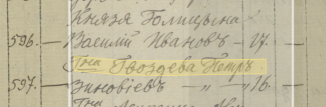 Князя Голицына
596. — Василій Ивановъ — 17. —
Гна Гвоздева Петръ
597. — Зиновіевъ — " — 16.
Гна